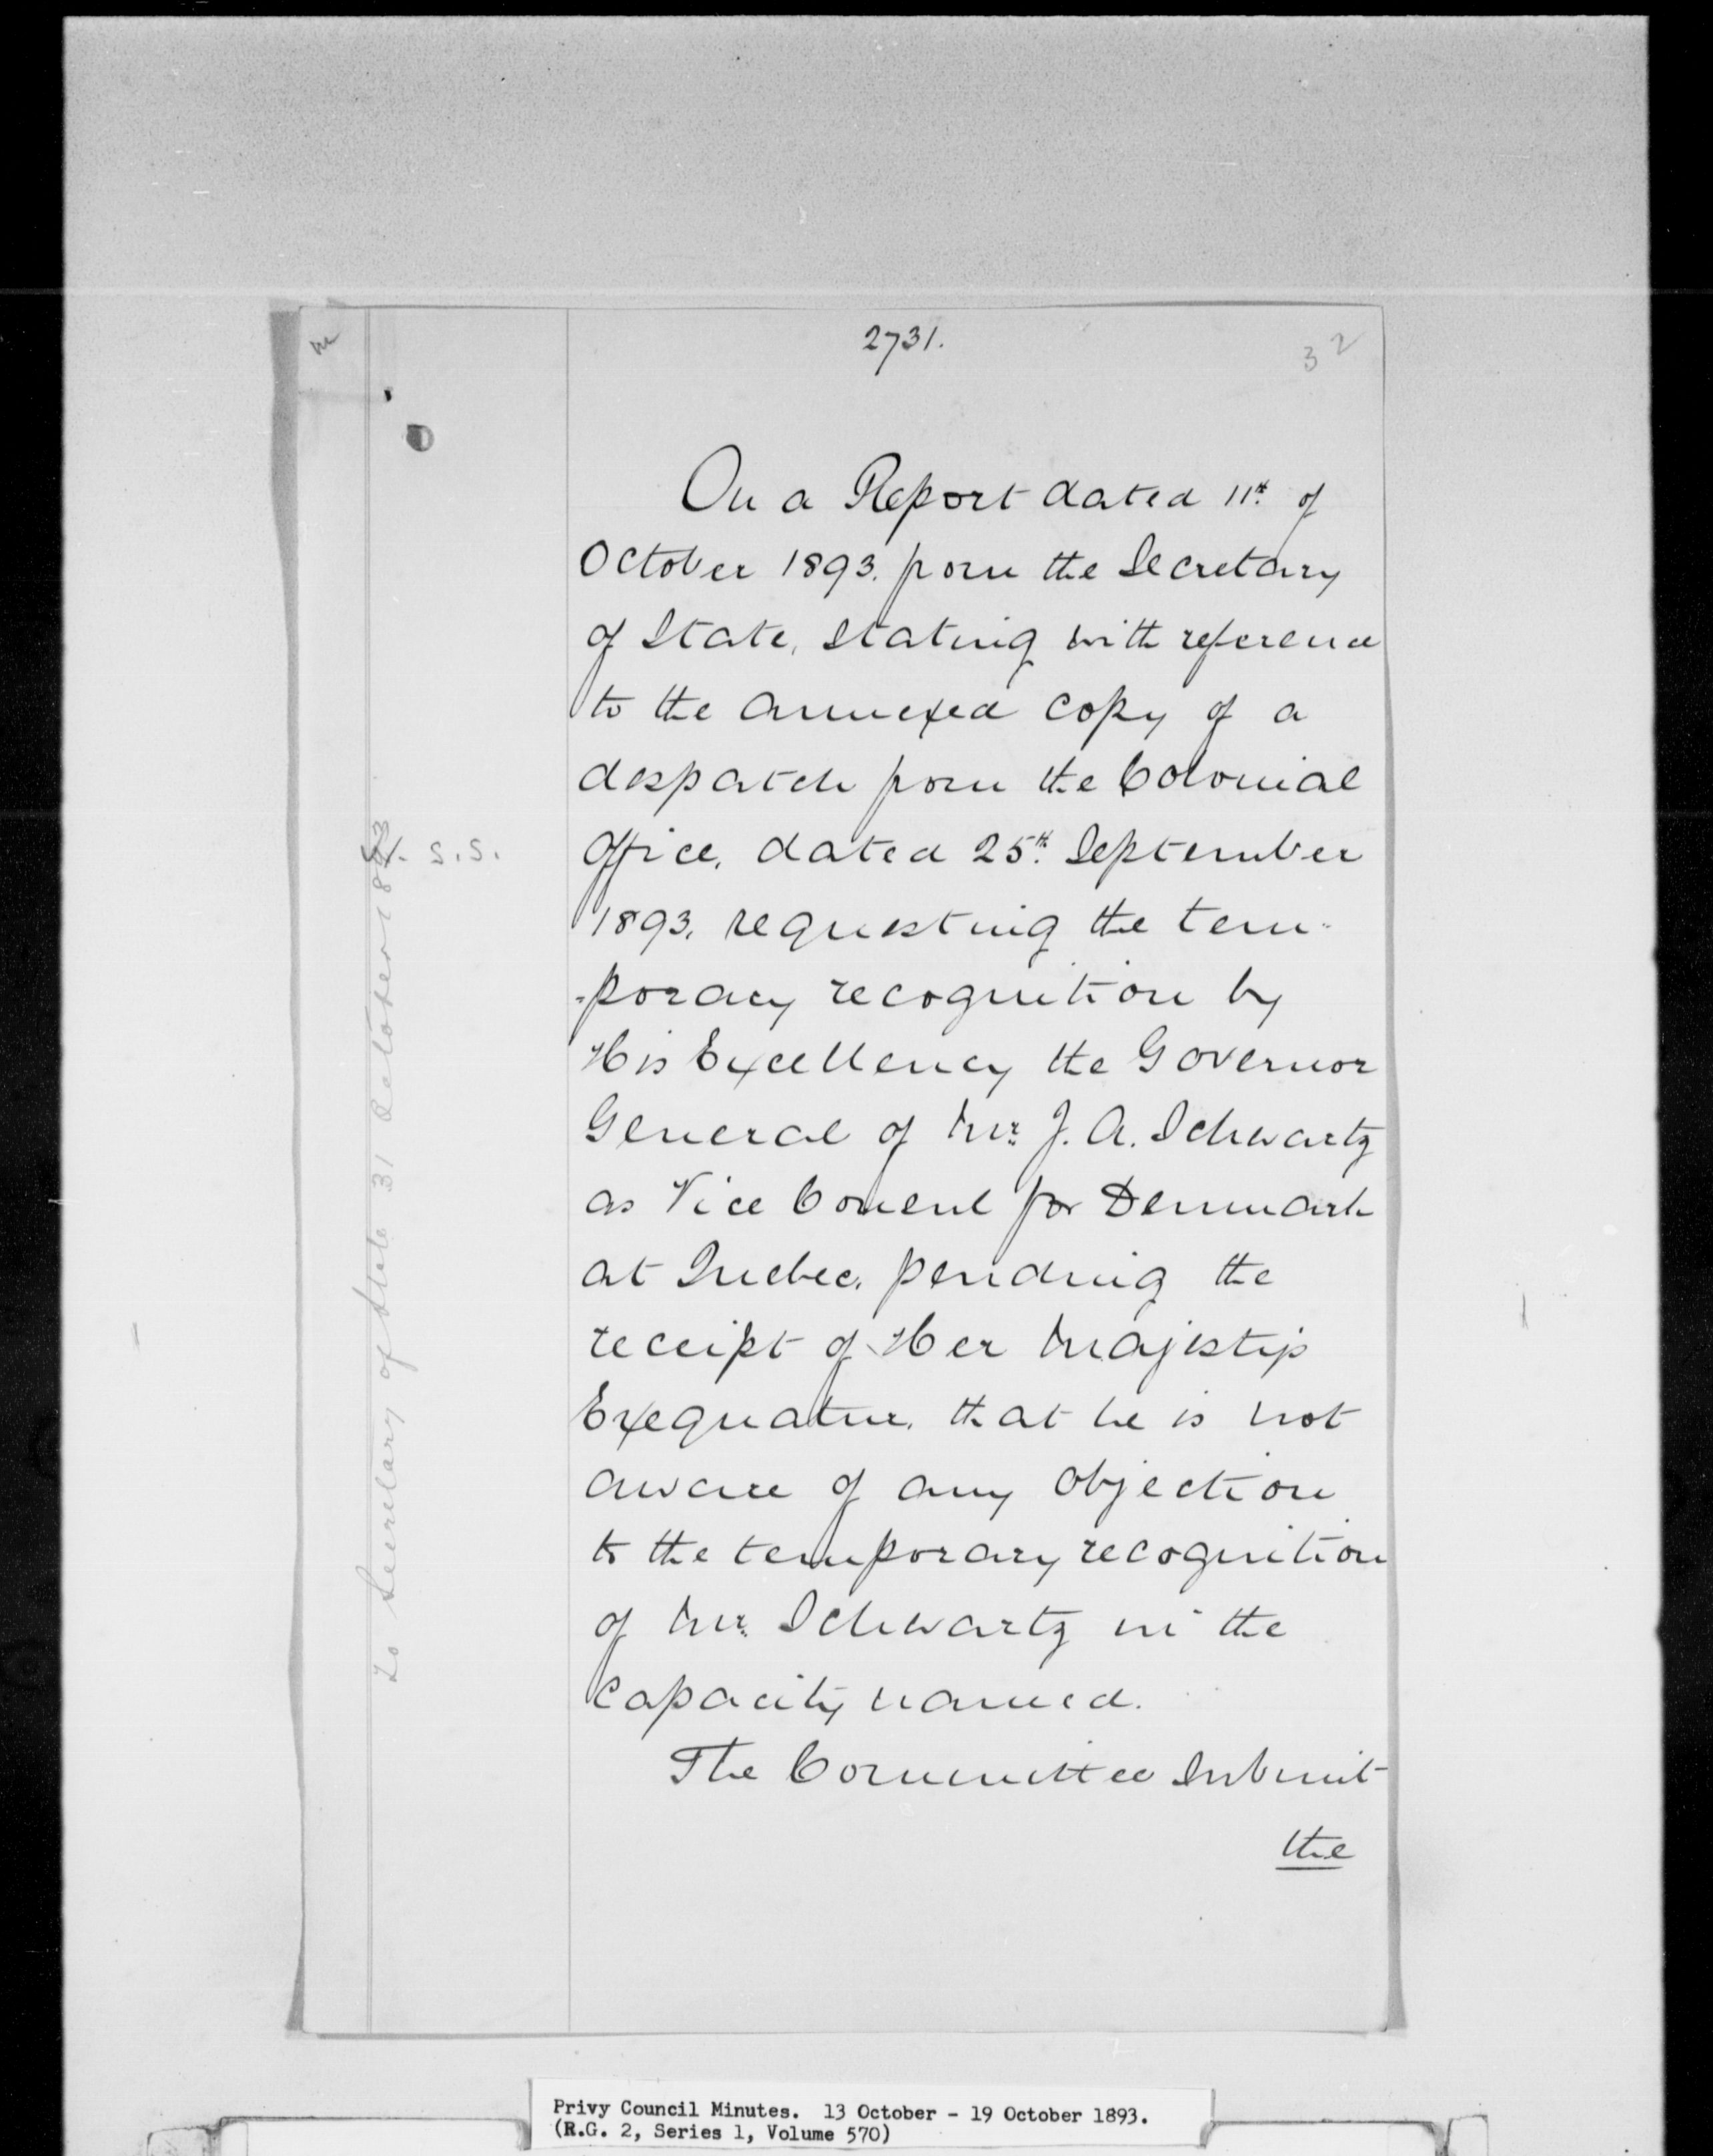 2731.
32
On a Report dated 11th of
October 1893. from the Secretary
of State, stating with reference
to the annexed copy of a
despatch from the Colonial
Office, dated 25th September
1893. requesting the tem-
-porary recognition by
His Excellency the Governor
General of Mr. J. A. Schwartz
as Vice Consul for Denmark
at Quebec, pending the
receipt of Her Majesty's
Exequatur, that he is not
aware of any objection
to the temporary recognition
of Mr. Schwartz in the
capacity named.
The Committee submit
the
S.S.
To Secretary of State 31 October 1893
Privy Council Minutes. 13 October - 19 October 1893.
(R.G. 2, Series 1, Volume 570)